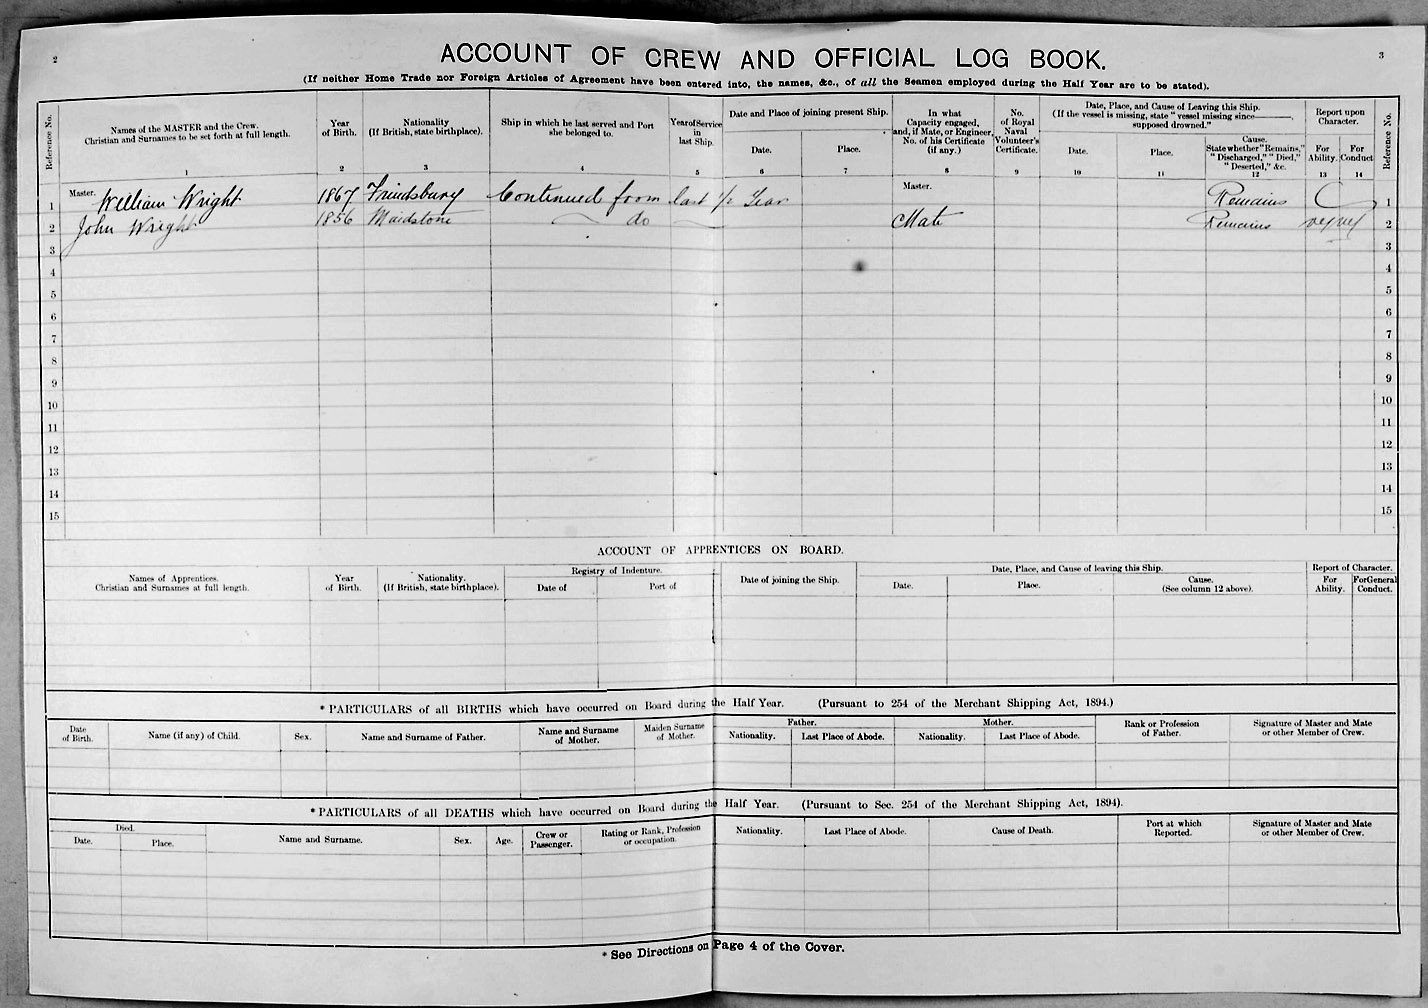 2
3
ACCOUNT OF CREW AND OFFICIAL LOG BOOK.
(If neither Home Trade nor Foreign Articles of Agreement have been entered into, the names, &c., of all the Seamen employed during the Half Year are to be stated).
Reference No.
Names of the MASTER and the Crew.
Christian and Surnames to be set forth at full length.
1
Year
of Birth.
2
Nationality
(If British, state birthplace).
3
Ship in which he last served and Port
she belonged to.
4
Year of Service
in
last Ship.
5
Date and Place of joining present Ship.
Date.
6
Place.
7
In what
Capacity engaged,
and, if Mate, or Engineer,
No. of his Certificate
(if any.)
8
No.
of Royal
Naval
Volunteer's
Certificate.
9
Date, Place, and Cause of Leaving this Ship.
(If the vessel is missing, state "vessel missing since———,
supposed drowned."
Date.
10
Place.
11
Cause.
State whether "Remains,"
"Discharged," "Died,"
"Deserted," &c.
12
Report upon
Character.
For
Ability.
13
For
Conduct
14
Reference No.
1 Master. William Wright 1867 Frindsbury Continued from last ½ Year Master. Remains 1
2 John Wright 1856 Maidstone do Mate Remains 2
3 3
4 4
5 5
6 6
7 7
8 8
9 9
10 10
11 11
12 12
13 13
14 14
15 15
ACCOUNT OF APPRENTICES ON BOARD.
Names of Apprentices.
Christian and Surnames at full length.
Year
of Birth.
Nationality.
(If British, state birthplace).
Registry of Indenture.
Date of
Port of
Date of joining the Ship.
Date, Place, and Cause of leaving this Ship.
Date.
Place.
Cause.
(See column 12 above).
Report of Character.
For
Ability.
For General
Conduct.
* PARTICULARS of all BIRTHS which have occurred on Board during the Half Year. (Pursuant to 254 of the Merchant Shipping Act, 1894.)
Date
of Birth.
Name (if any) of Child.
Sex.
Name and Surname of Father.
Name and Surname
of Mother.
Maiden Surname
of Mother.
Father.
Nationality.
Last Place of Abode.
Mother.
Nationality.
Last Place of Abode.
Rank or Profession
of Father.
Signature of Master and Mate
or other Member of Crew.
* PARTICULARS of all DEATHS which have occurred on Board during the Half Year. (Pursuant to Sec. 254 of the Merchant Shipping Act, 1894).
Died.
Date.
Place.
Name and Surname.
Sex.
Age.
Crew or
Passenger.
Rating or Rank, Profession
or occupation.
Nationality.
Last Place of Abode.
Cause of Death.
Port at which
Reported.
Signature of Master and Mate
or other Member of Crew.
* See Directions on Page 4 of the Cover.